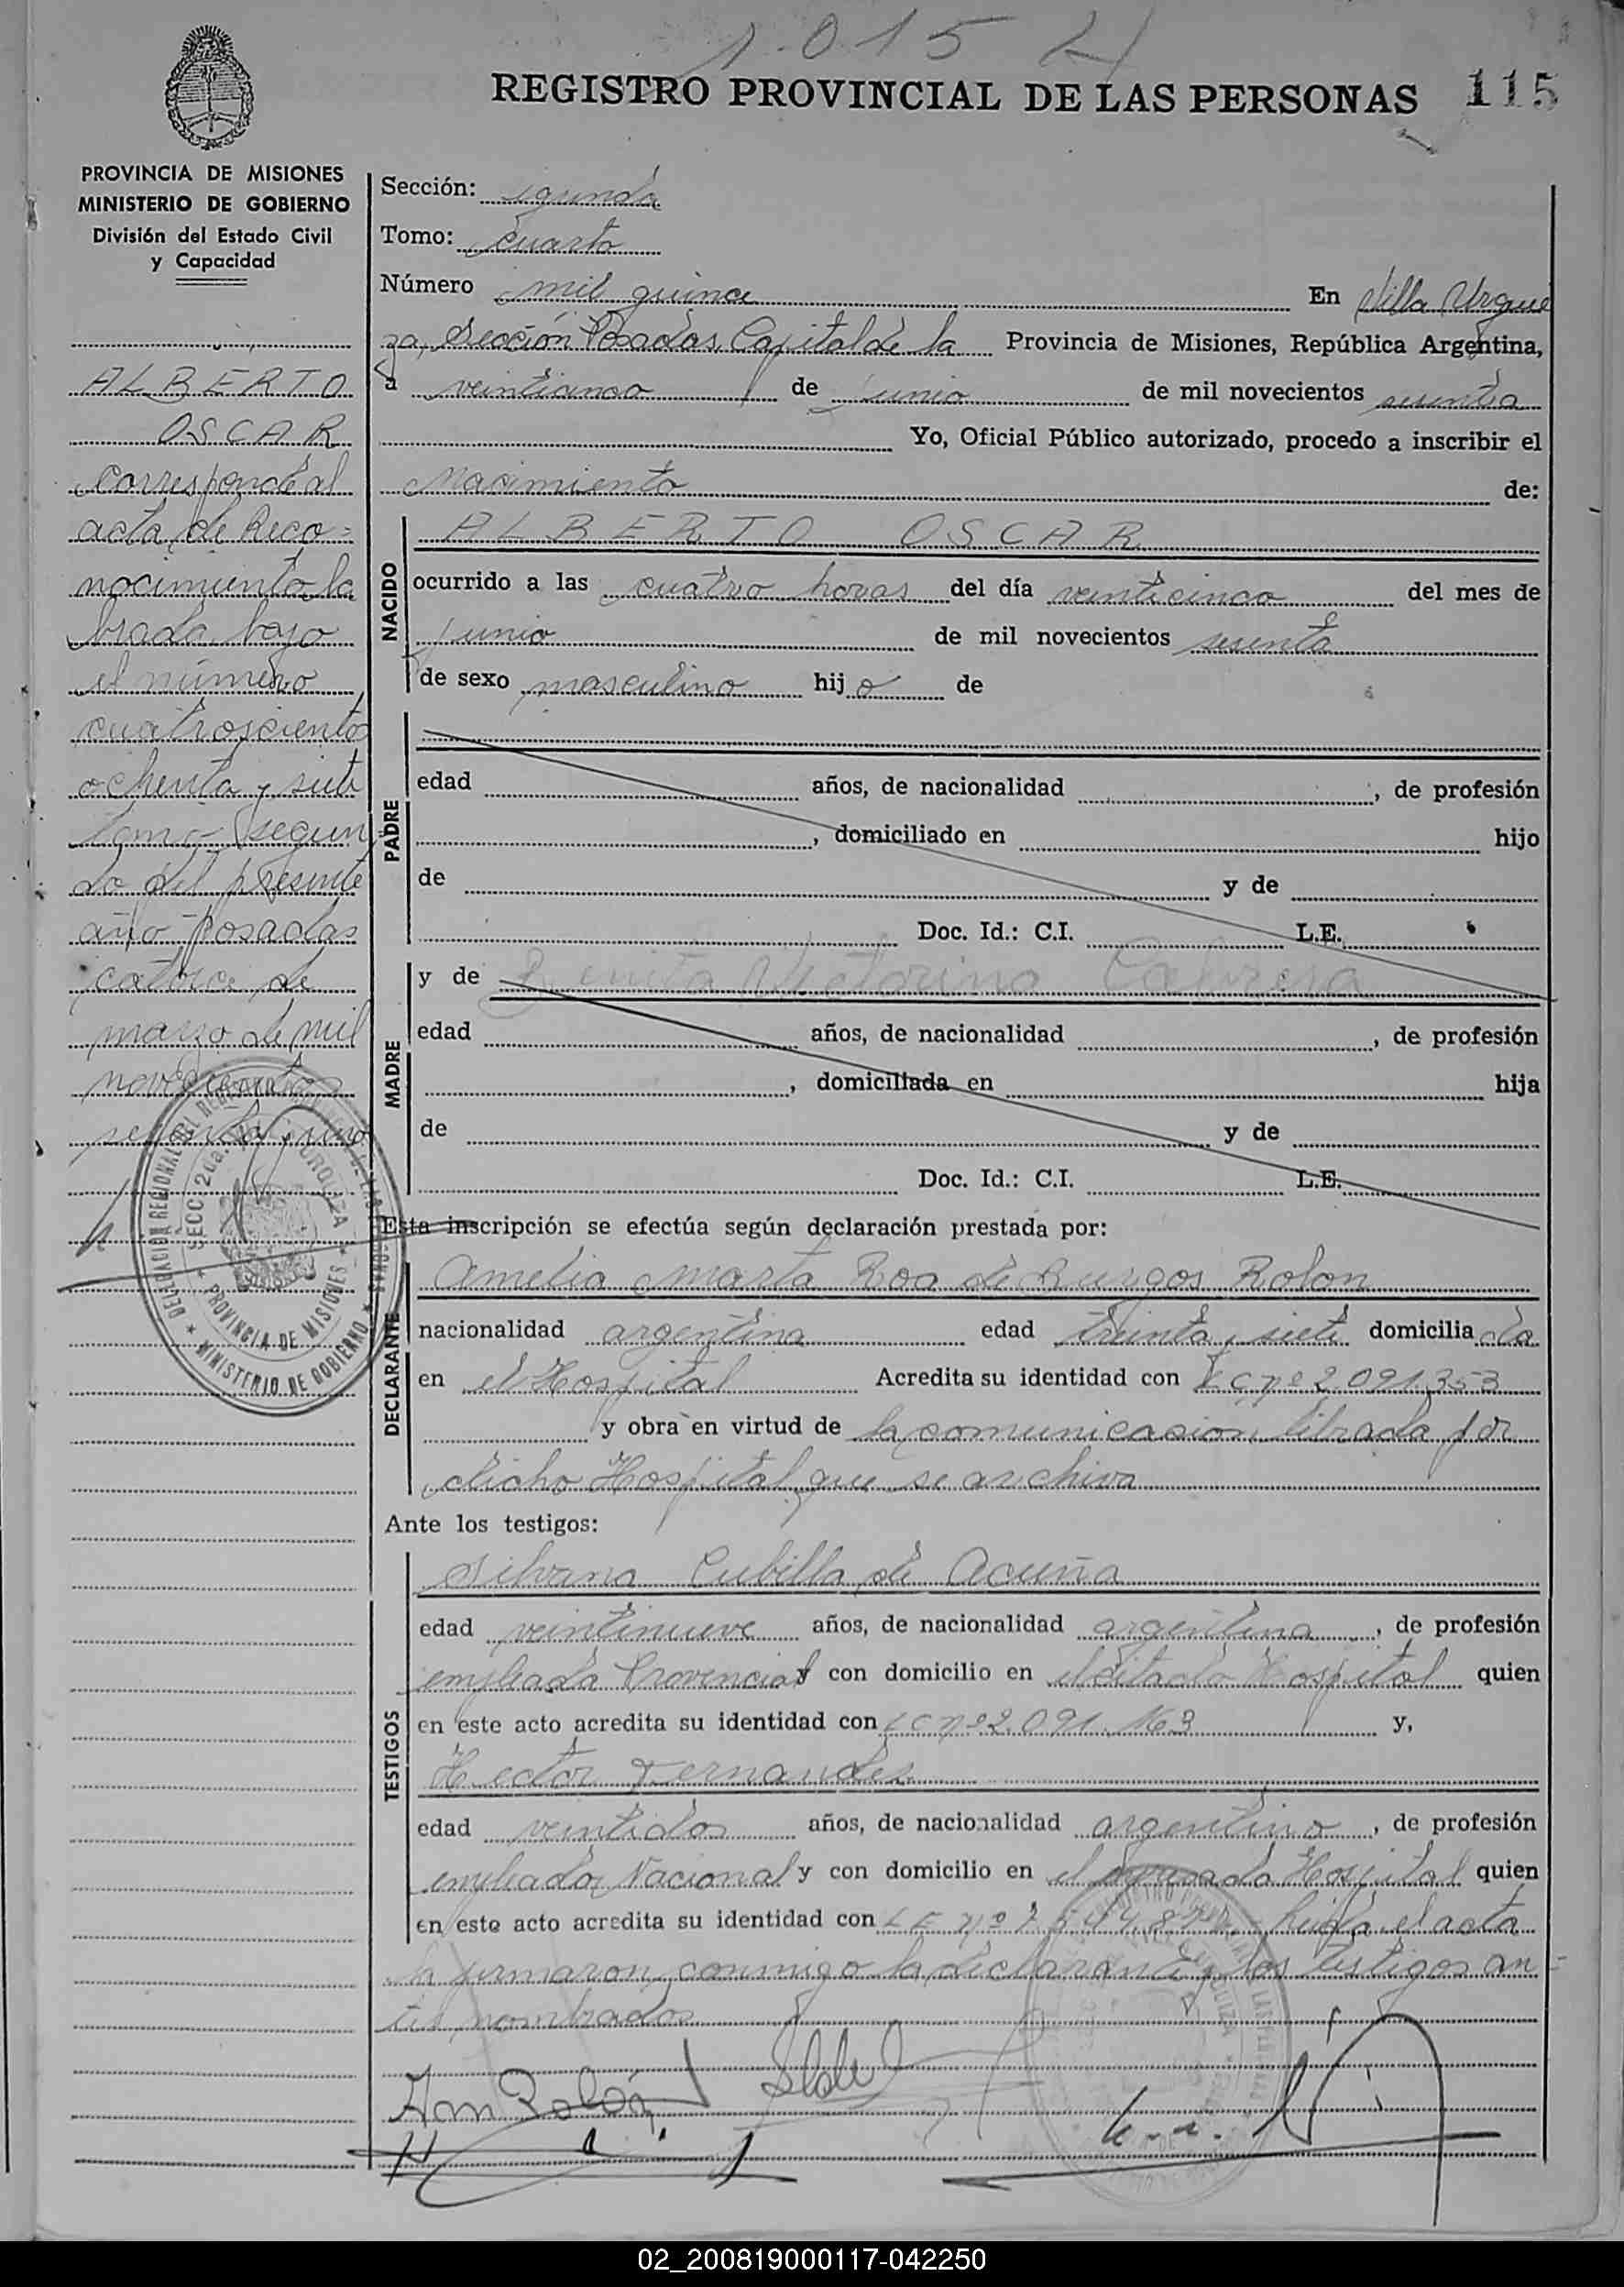 1015 4
REGISTRO PROVINCIAL DE LAS PERSONAS 115
PROVINCIA DE MISIONES
MINISTERIO DE GOBIERNO
División del Estado Civil
y Capacidad
ALBERTO
OSCAR
Corresponde al
acta de Reco=
nocimiento la
brada bajo
el número
cuatroscientos
ochenta y siete
tomo segun
do del presente
año posadas
catorce de
marzo de mil
novecientos
sesenta y uno
Sección: segunda
Tomo: Cuarto
Número mil quince En Villa Urqui
za, Sección Posadas Capital de la Provincia de Misiones, República Argentina,
a veinticinco de junio de mil novecientos sesenta
Yo, Oficial Público autorizado, procedo a inscribir el
Nacimiento de:
NACIDO
ALBERTO OSCAR
ocurrido a las cuatro horas del día veinticinco del mes de
junio de mil novecientos sesenta
de sexo masculino hijo de
PADRE
edad años, de nacionalidad , de profesión
, domiciliado en hijo
de y de
Doc. Id.: C.I. L.E.
MADRE
y de Benita Victorina Cabrera
edad años, de nacionalidad , de profesión
, domiciliada en hija
de y de
Doc. Id.: C.I. L.E.
Esta inscripción se efectúa según declaración prestada por:
DECLARANTE
Amelia Marta Roa de Burgos Rolon
nacionalidad argentina edad treinta y siete domiciliada
en el Hospital Acredita su identidad con L c nº 2.091.353
y obra en virtud de la comunicacion librada por
dicho Hospital que se archiva
Ante los testigos:
TESTIGOS
Silvana Cubilla de Acuña
edad veintinueve años, de nacionalidad argentina, de profesión
empleada Provincial y con domicilio en el citado Hospital quien
en este acto acredita su identidad con L C nº 2.091.163 y,
Hector Fernandez
edad veintidos años, de nacionalidad argentino, de profesión
empleado Nacional y con domicilio en el Hospital quien
en este acto acredita su identidad con L E nº Leida el acta
la firmaron conmigo la declarante y los testigos an=
tes nombrados
DELEGACION REGIONAL DEL REGISTRO
SECC. 2da. URQUIZA
PROVINCIA DE MISIONES
MINISTERIO DE GOBIERNO
02_200819000117-042250